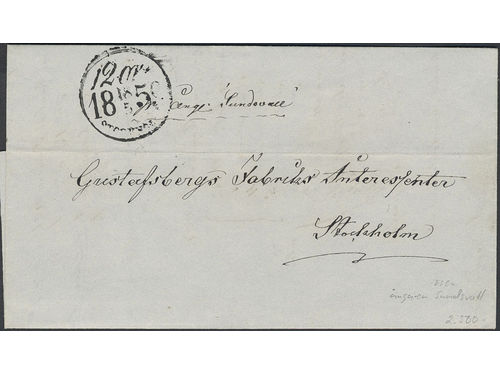 12 ör
18 18 5
STOCKHOLM
Ång. "Sundsvall"
Gustafsbergs Fabriks Interessenter
Stockholm
ångaren Sundsvall
2.500-